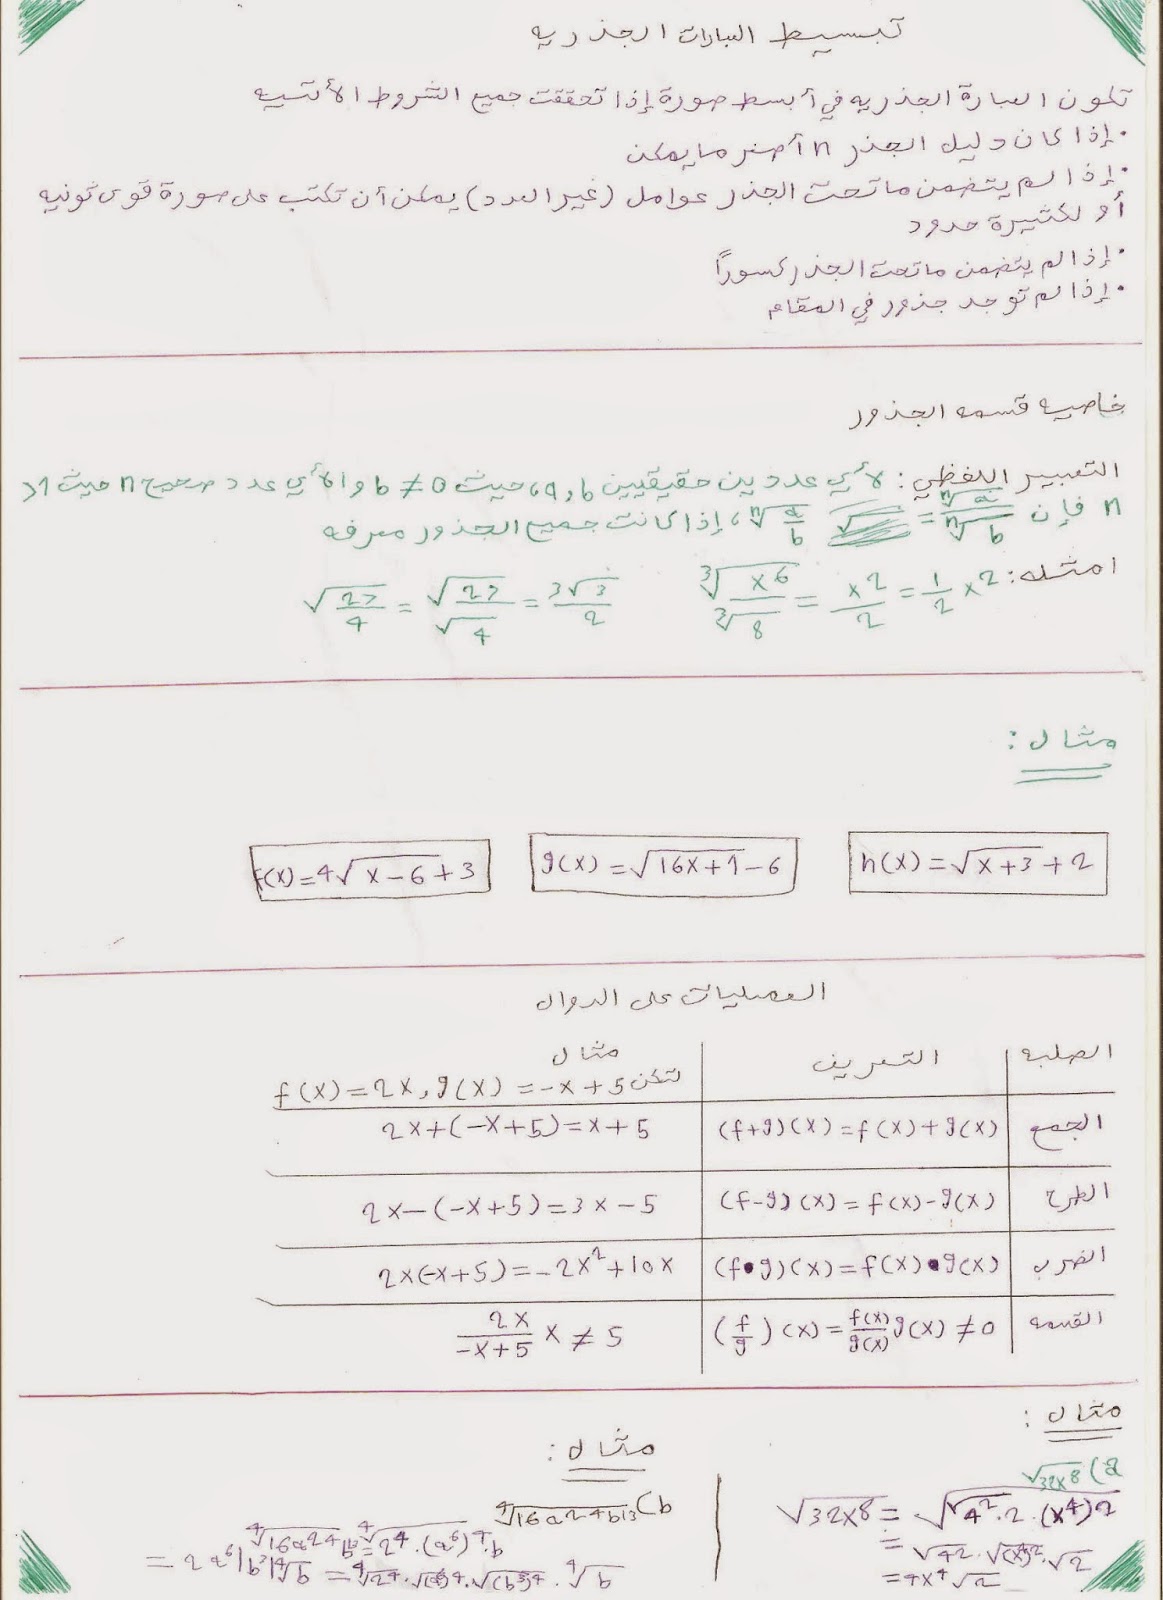 تبسيط العبارات الجذريه
تكون العبارة الجذريه في أبسط صورة إذا تحققت جميع الشروط الأتسيه
• إذا كان دليل الجذر n أصغر ما يمكن
• إذا لم يتضمن ما تحت الجذر عوامل (غير العدد) يمكن أن تكتب على صورة قوى نونيه
أو لكثيرة حدود
• إذا لم يتضمن ما تحت الجذر كسوراً
• إذا لم توجد جذور في المقام
خاصيه قسمه الجذور
التعبير اللفظي: لأي عددين حقيقيين a, b، حيث b ≠ 0 والأي عدد صحيح n حيث 1<
n فإن ⁿ√a/ⁿ√b = ⁿ√(a/b)، إذا كانت جميع الجذور معرفه
امثله: ³√x⁶/³√8 = x²/2 = 1/2 x²
√(27/4) = √27/√4 = 3√3/2
مثال:
h(x) = √(x+3) + 2
g(x) = √(16x+1) - 6
f(x) = 4√(x-6) + 3
العمليات على الدوال
الصلبه التعريف مثال
لتكن f(x) = 2x, g(x) = -x + 5
الجمع (f+g)(x) = f(x) + g(x) 2x+(-x+5) = x+5
الطرح (f-g)(x) = f(x) - g(x) 2x-(-x+5) = 3x-5
الضرب (f•g)(x) = f(x)•g(x) 2x(-x+5) = -2x²+10x
القسمه (f/g)(x) = f(x)/g(x) g(x) ≠ 0 2x/(-x+5) x ≠ 5
مثال:
a) √32x8
√32x8 = √(4².2.(x⁴)2
= √42.√(x⁴)².√2
= 4x⁴√2
مثال:
b) ⁴√16a24b13